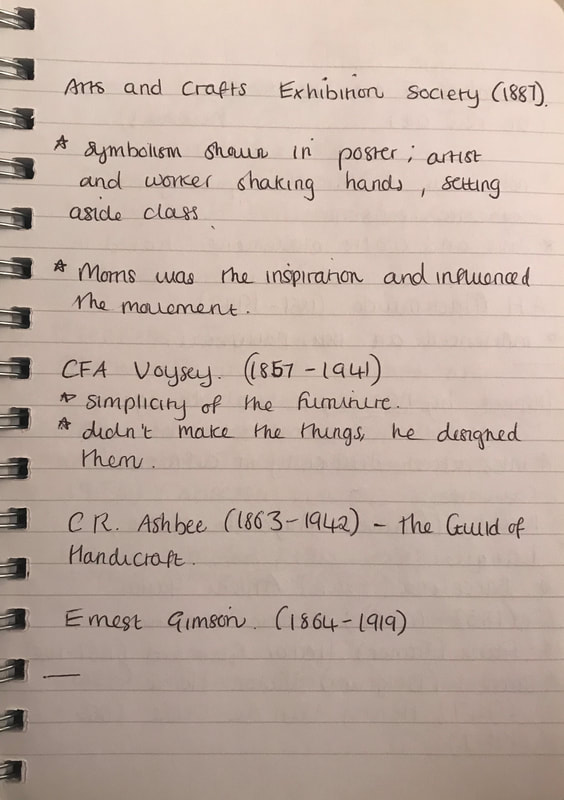 Arts and Crafts Exhibition Society (1887).
☆ symbolism shown in poster; artist
and worker shaking hands, setting
aside class.
☆ Morris was the inspiration and influenced
the movement.
CFA Voysey. (1857-1941)
☆ simplicity of the furniture.
☆ didn't make the things, he designed
them.
C R. Ashbee (1863-1942) - the Guild of
Handicraft.
Ernest Gimson. (1864-1919)